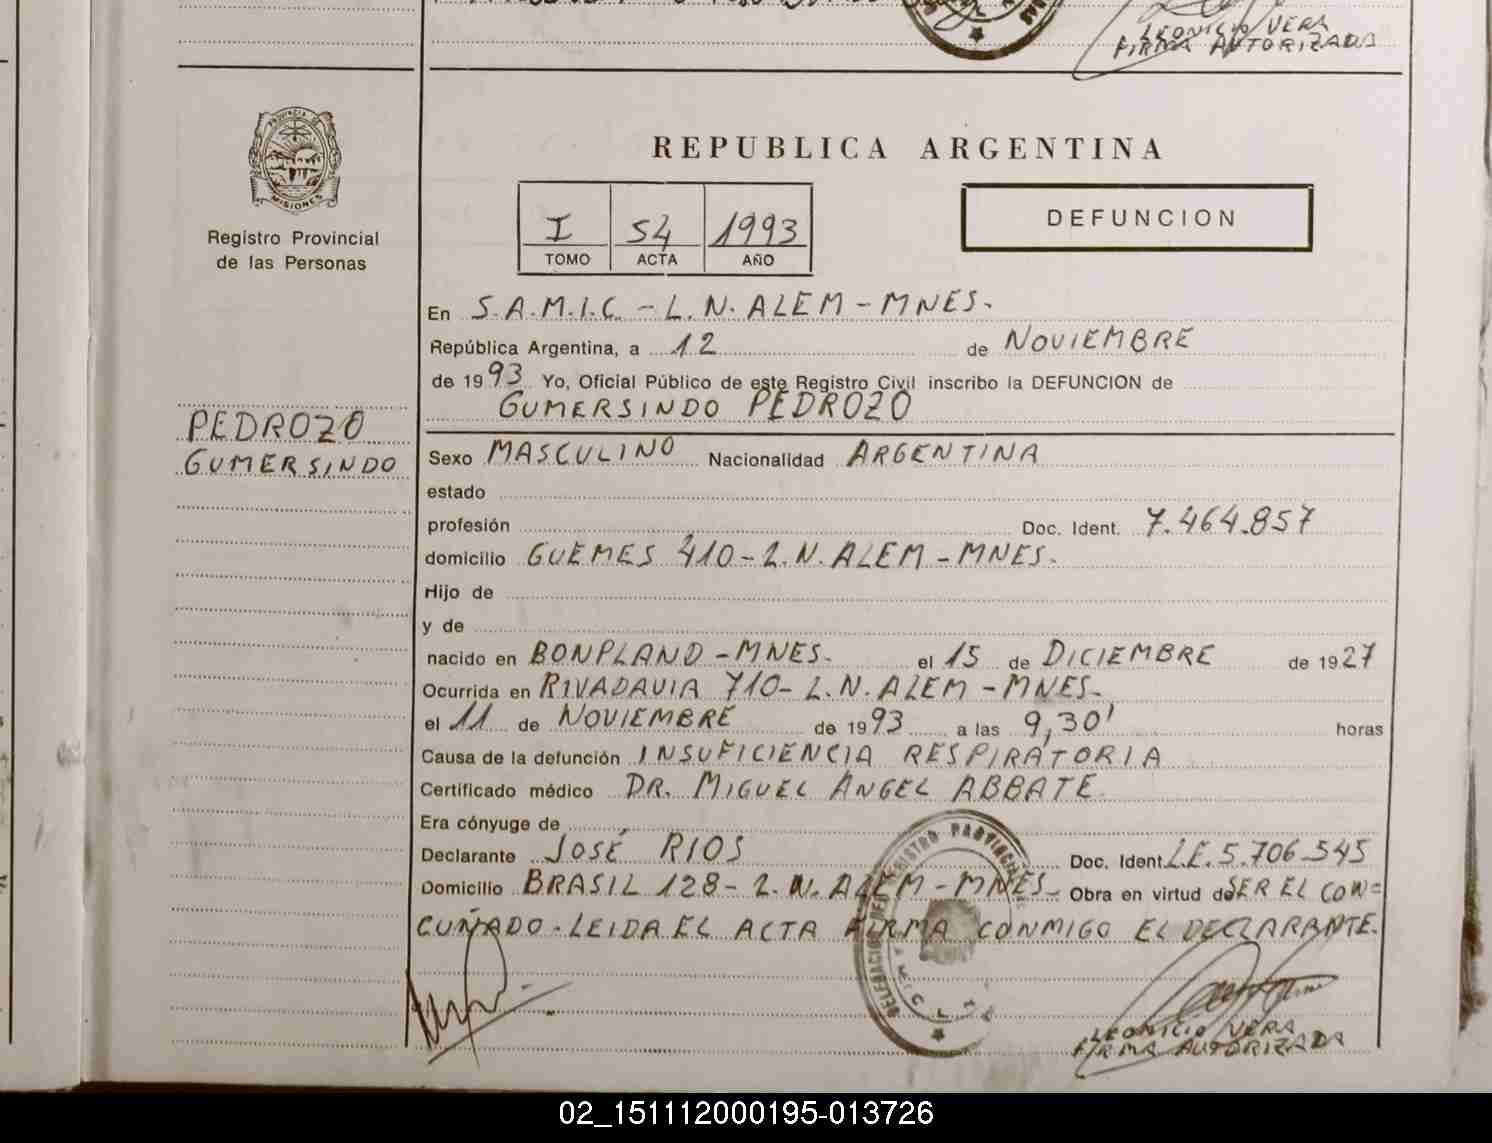 LEONICIO VERA
FIRMA AUTORIZADA
PROVINCIA DE
MISIONES
Registro Provincial
de las Personas
REPUBLICA ARGENTINA
I 54 1993
TOMO ACTA AÑO
DEFUNCION
En S.A.M.I.C. - L.N. ALEM - MNES.
República Argentina, a 12 de NOVIEMBRE
de 1993 Yo, Oficial Público de este Registro Civil inscribo la DEFUNCION de
GUMERSINDO PEDROZO
PEDROZO
GUMERSINDO
Sexo MASCULINO Nacionalidad ARGENTINA
estado
profesión Doc. Ident. 7.464.857
domicilio GUEMES 410 - L.N. ALEM - MNES.
Hijo de
y de
nacido en BONPLAND - MNES. el 15 de DICIEMBRE de 1927
Ocurrida en RIVADAVIA 710 - L.N. ALEM - MNES.
el 11 de NOVIEMBRE de 1993 a las 9,30' horas
Causa de la defunción INSUFICIENCIA RESPIRATORIA
Certificado médico DR. MIGUEL ANGEL ABBATE
Era cónyuge de
Declarante JOSÉ RIOS Doc. Ident. L.E. 5.706.545
Domicilio BRASIL 128 - L.N. ALEM - MNES. Obra en virtud de SER EL CON=
CUÑADO. LEIDA EL ACTA FIRMA CONMIGO EL DECLARANTE.
LEONICIO VERA
FIRMA AUTORIZADA
02_151112000195-013726